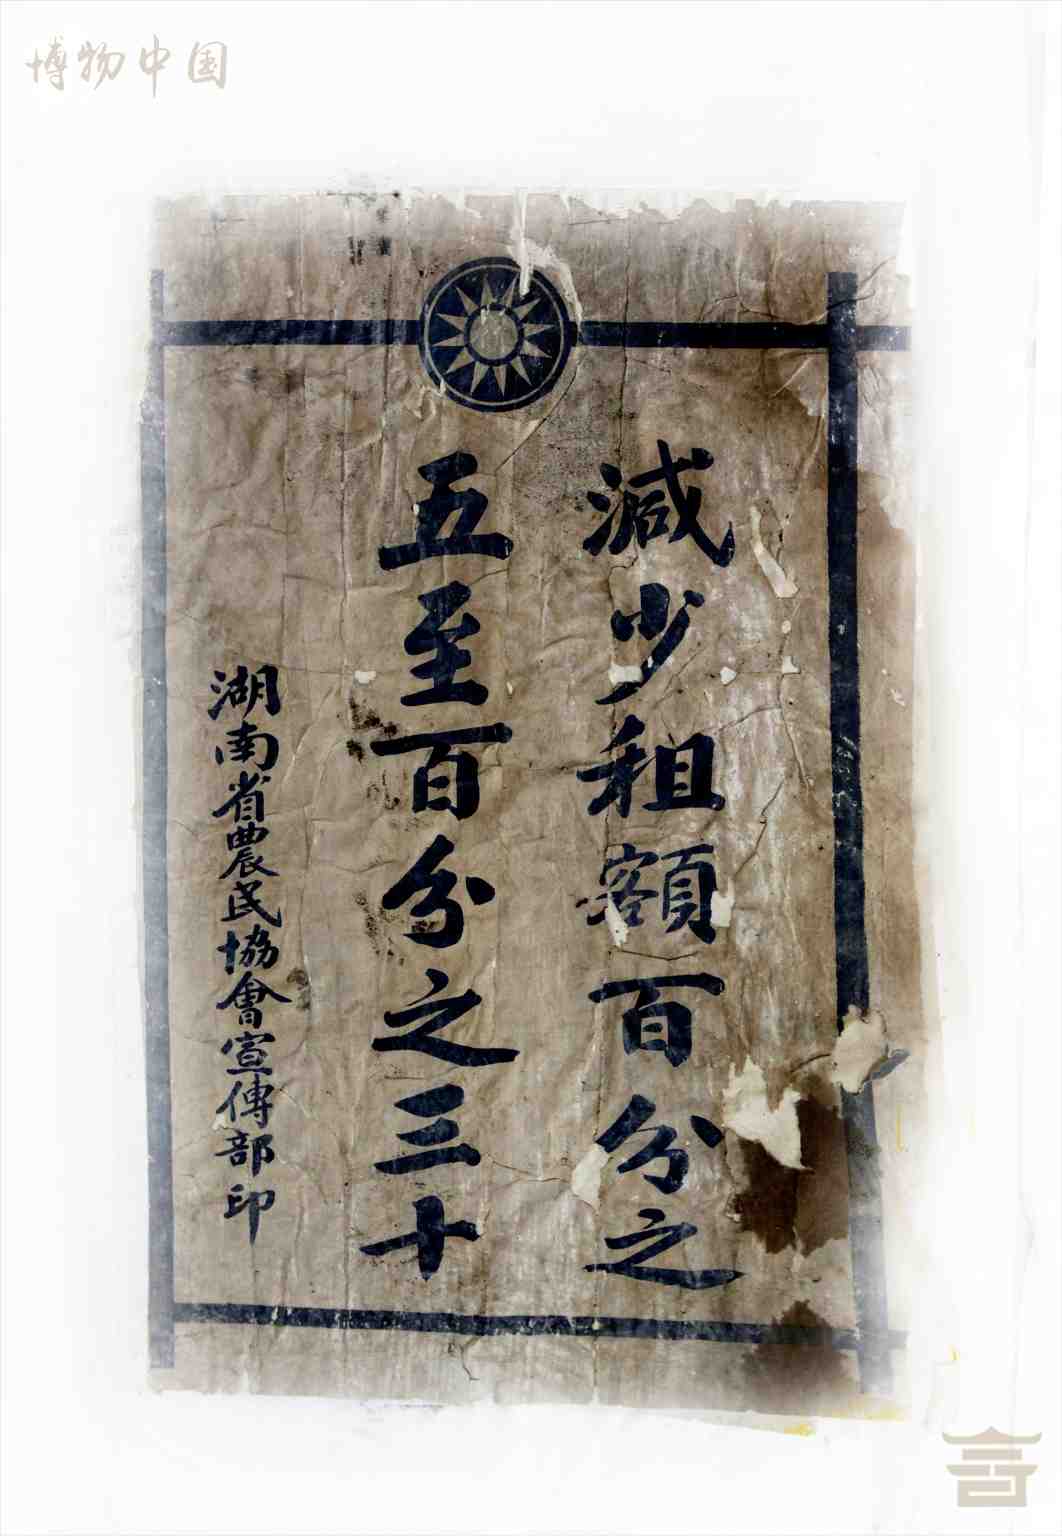 博物中国
減少租額百分之
五至百分之三十
湖南省農民協會宣傳部印